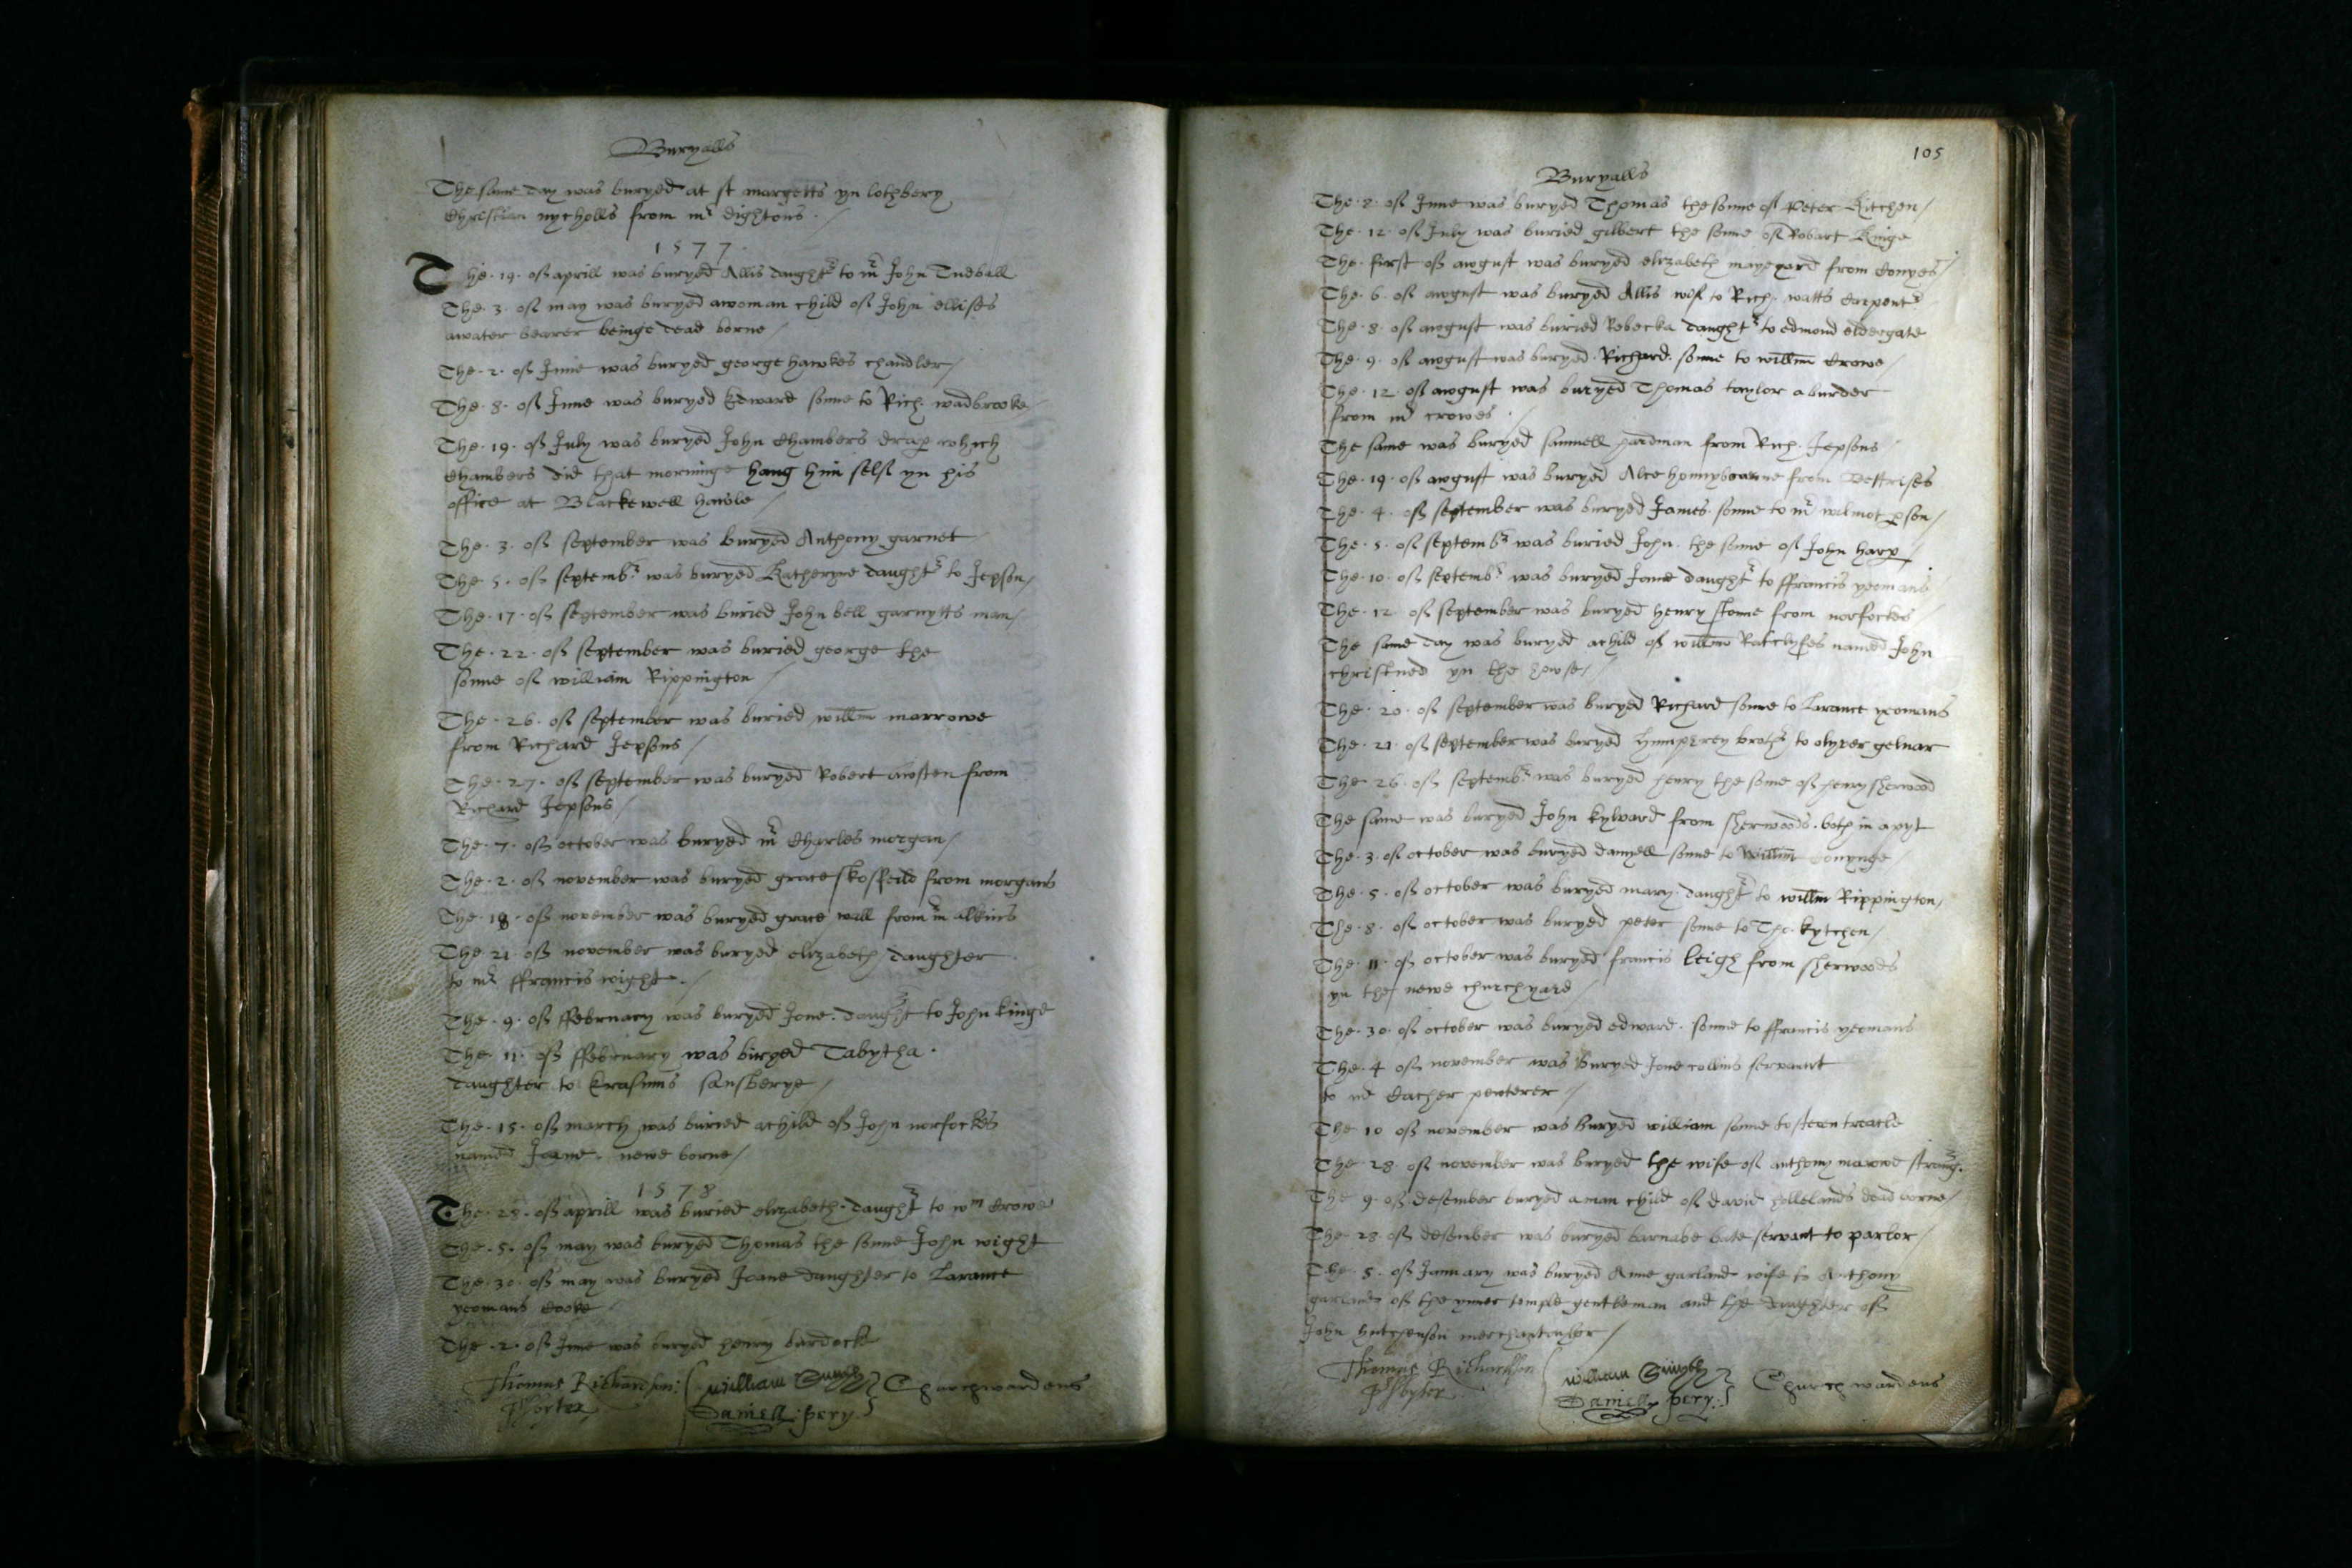 Buryalls
The same day was buryed at st margetts yn lothbery
Christian nycholls from mr dightons
1577
The 19 of aprill was buryed Allis daughtr to mr John Tudball
The 3 of may was buryed a woman child of John ellises
a water bearer beinge dead borne
The 2 of June was buryed george hawkes chandler
The 8 of June was buryed Edward sonne to Rich wadbrooke
The 19 of July was buryed John Chambers drap which
Chambers did that morninge hang him self yn his
office at Blackewell hawle
The 3 of september was buryed Anthony garnet
The 5 of septembr was buryed Katheryne daughtr to Jepson
The 17 of september was buried John bell garnytts man
The 22 of september was buried george the
sonne of william Rippington
The 26 of september was buried willm marrowe
from Richard Jepsons
The 27 of september was buryed Robert awsten from
Richard Jepsons
The 7 of october was buryed mr Charles morgan
The 2 of november was buryed grace skoffeild from morgans
The 18 of november was buryed grace will from mr alkins
The 21 of november was buryed elizabeth daughter
to mr ffrancis wight
The 9 of ffebruary was buryed Jone daught to John kinge
The 11 of ffebruary was buryed Tabytha
daughter to Erasmus sansberye
The 15 of march was buried a child of John norfockes
named Joane newe borne
1578
The 28 of aprill was buried elizabeth daughtr to wm Crowe
The 5 of may was buryed Thomas the sonne John wight
The 30 of may was buryed Joane daughter to Larance
yeomans Cooke
The 2 of June was buryed henry burdock
Thomas Richardson
william Smyth
Churchwardens
Daniell pery
105
Buryalls
The 8 of June was buryed Thomas the sonne of Peter Kitchen
The 12 of July was buried gilbert the sonne of Robart Kinge
The first of awgust was buryed elizabeth from Conyes
The 6 of awgust was buryed Allis wif to Rich watts Carpentr
The 8 of awgust was buried Rebecka daughtr to edmond eldergate
The 9 of awgust was buryed Richard sonne to willm Crowe
The 12 of awgust was buryed Thomas taylor a burder
from mr crowes
The same was buryed samuell hardman from Rich Jepsons
The 19 of awgust was buryed Alce from
The 4 of september was buryed James sonne to mr wilmot
The 5 of septembr was buried John the sonne of John harp
The 10 of septembr was buryed Jone daughtr to ffrancis yeomans
The 12 of september was buryed henry stonne from norfockes
The same day was buryed a child of willm Ratclyfes named John
christned yn the howse
The 20 of september was buryed Richard sonne to Larance yeomans
The 21 of september was buryed humphrey brothr to olyver gelnar
The 26 of septembr was buryed henry the sonne of henry sherwood
The same was buryed John kylward from sherwoods both in a pyt
The 3 of october was buryed danyell sonne to willm Conynge
The 5 of october was buryed mary daughtr to willm Rippington
The 8 of october was buryed peter sonne to Tho kytchen
The 11 of october was buryed francis leigh from sherwoods
yn the newe churchyard
The 30 of october was buryed edward sonne to ffrancis yeomans
The 4 of november was buryed Jone collins servant
to mr Catcher pewterer
The 10 of november was buryed william sonne to steven treacle
The 28 of november was buryed the wife of anthony marowe
The 9 of desember buryed a man child of david hollelands dead borne
The 28 of desember was buryed barnabe bate servant to parlor
The 5 of January was buryed Anne garland wife to Anthony
garland of the ynner temple gentleman and the daughter of
John hutchenson merchantayler
Thomas Richardson
william Smyth
Churchwardens
Daniell pery